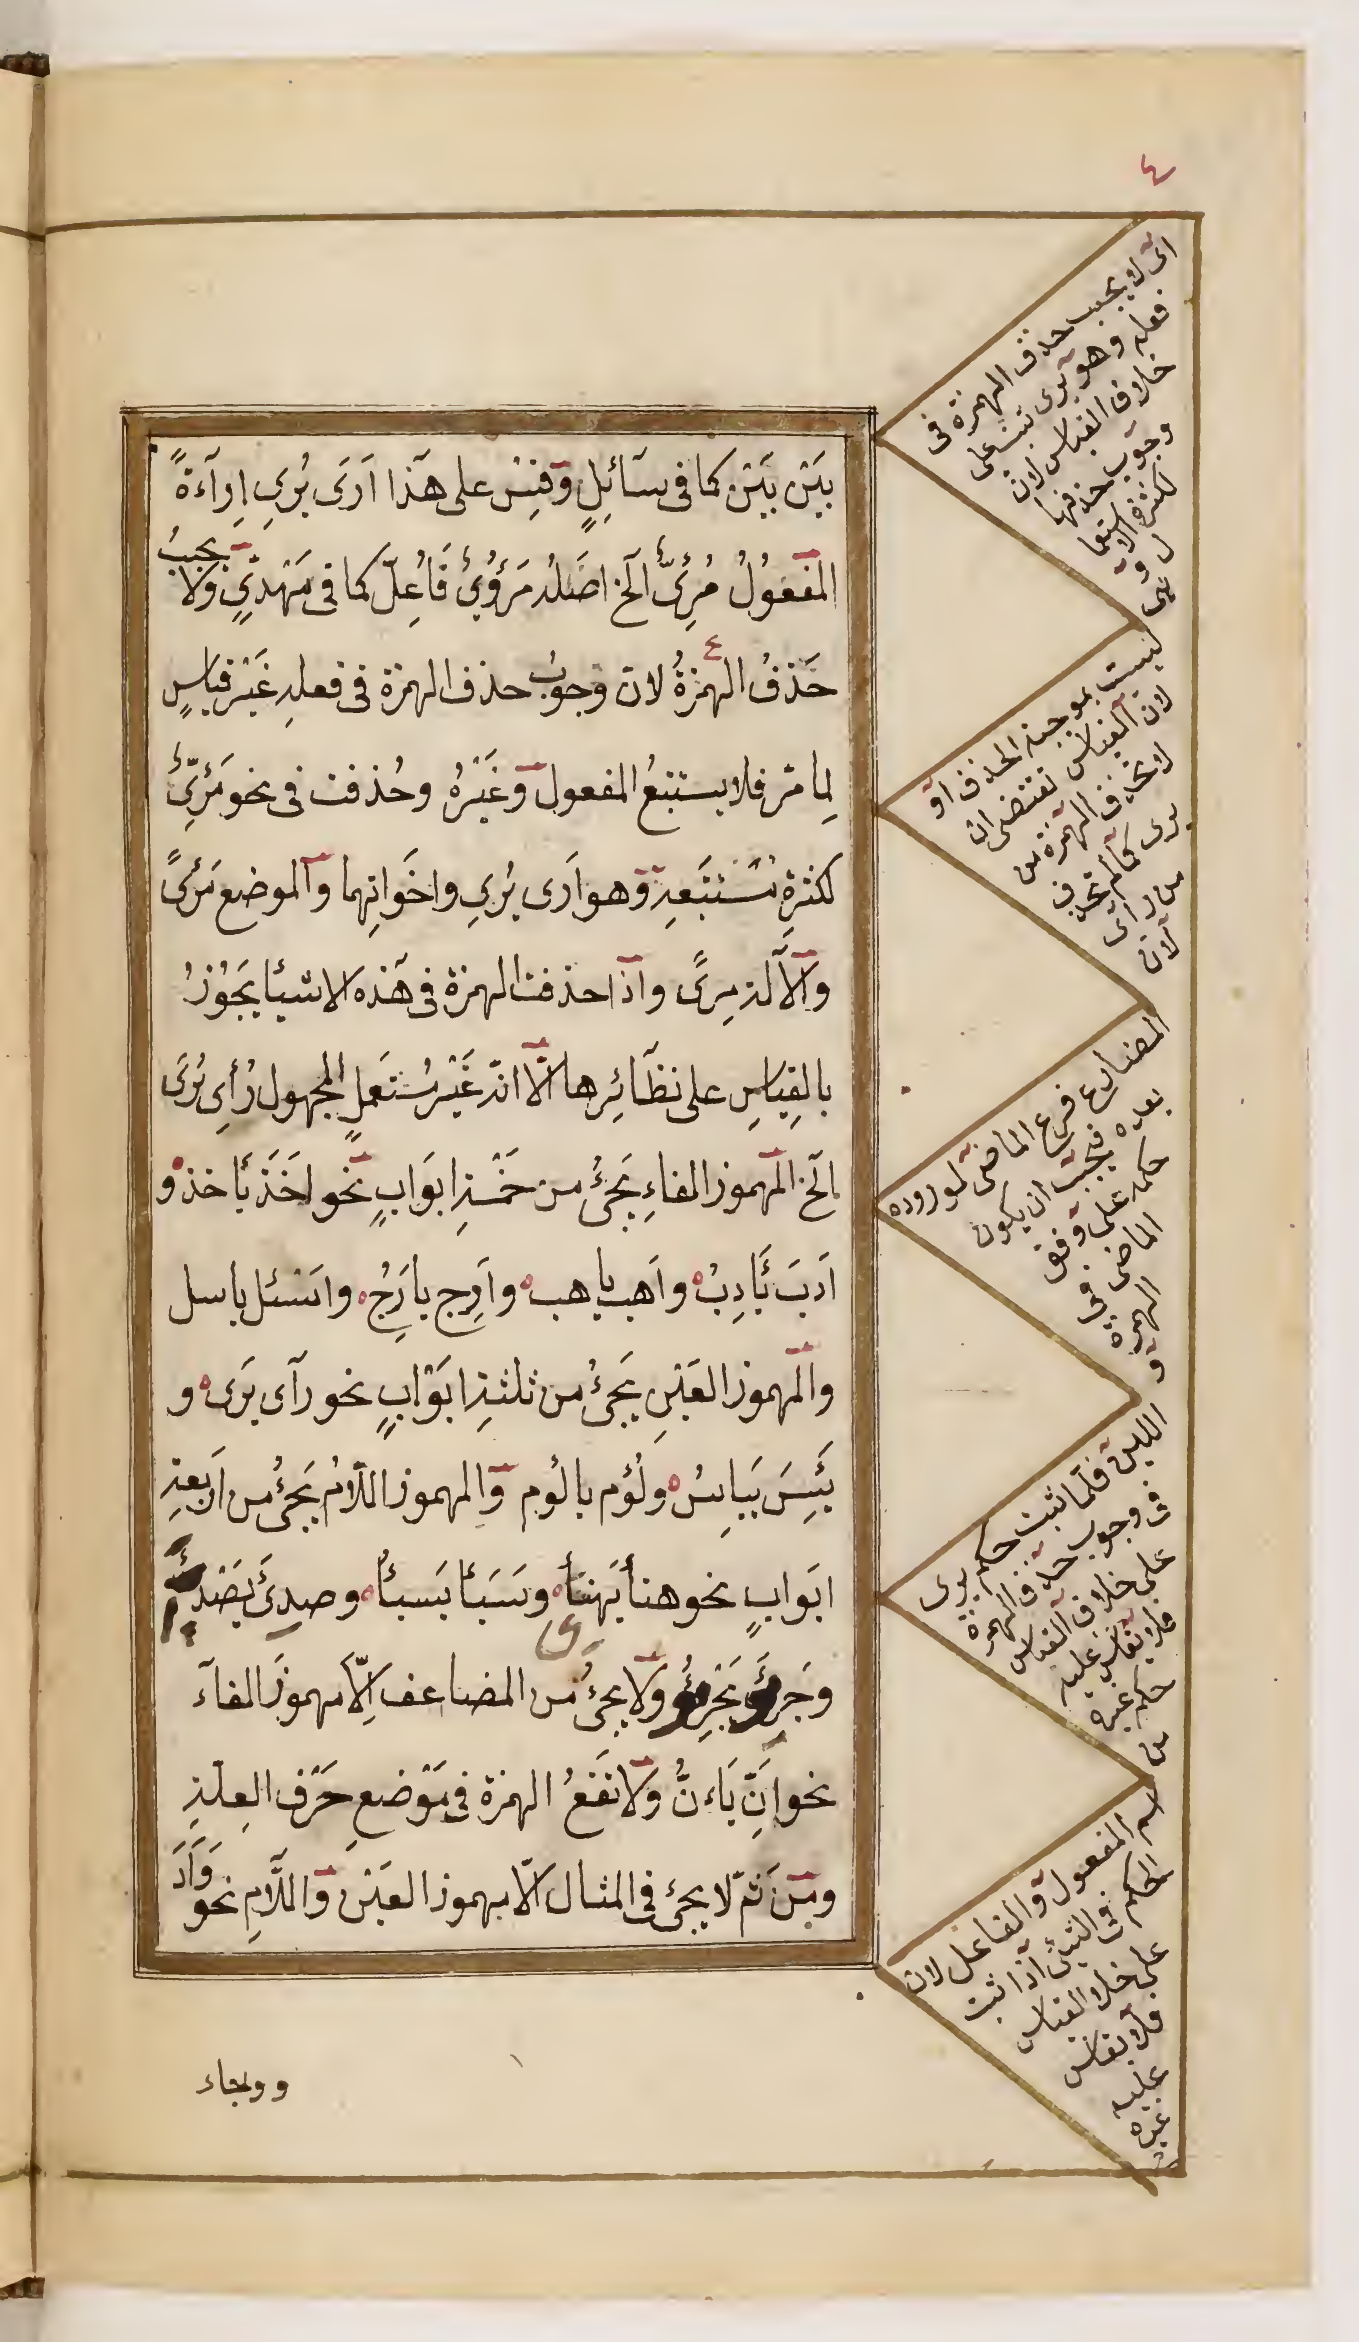 ٤
بَيْنَ بَيْنَ كما فى سآئِلٍ وقِسْ على هَذا اَرَى يُرِى اِرآءةً
المَفْعُولُ مُرْئِىٌّ الخ اصْلُهُ مَرْؤُىٌ فَاُعِلّ كما فى مَهْدِىٍّ ولا يجبُ
حَذفُ الهمزةُ لان وجوب حذف الهمزة فى فعله غَيْر قياسٍ
لِما مَرّ فلا يستتبعُ المفعول وغَيْرُهُ وحُذفت فى نحو مَرْئِىٌّ
لكثرةِ مُسْتتبَعِهِ وهو اَرى يُرِى واخَواتِهما والموضع مَرْئىً
والآلَة مِرئىً واذا حذفت الهمزة فى هَذه الاشيا يجَوُزُ
بالقِياسِ على نظَآئِرِها الّا انّه غَيْر مُسْتعملٍ المجهول رُأِى يُرَى
الخ المهموز الفاءِ يَجئُ من خَمْسةِ ابوَابٍ نحو اخَذَ يَأخذ و
اَدبَ يَأدِبُ واَهب ياهب واَرِج يارَجُ واسئل ياسل
والمهموز العَيْنِ يَجئُ من ثلثةِ ابَوْابٍ نحو رَآى يَرَى و
يَئِسَ يَيايِسُ ولُؤم يالُوم والمهموز اللّامُ يَجئُ من اربعةِ
ابَوابٍ نحو هنأ يَهنأ وسَبَأ يَسبأُ وصدِئَ يَصْدئُ
وَجَرِئَو يَجْرِئُو ولا يجئُ من المضاعف اِلّا مهموزَ الفآء
نحو اَنَّ يَاءنُّ ولا تقَعُ الهمزة فى مَوْضعِ حَرْف العِلّةِ
ومن ثمّ لا يجئ فى المثال الّا مهموز العَيْن واللّامِ نحو وَآدَ
و وجاء
اى لا يجب حذف الهمزة فى
فعله وهو يرى ثبت على
خلاف القياس لان
وجوب حذفها
لكثرة الاستعما
ل و
هى
ليست بموجبة الحذف او
لان القياس تقتضى ان
لا تحذف الهمزة من
يرى كما لم تحذف
من رأى
لان
المضارع فرع الماضى لوروده
بعده فيجب ان يكون
حكمه على وفق
الماضى فى
الهمزة
و
اللين فلما ثبت حكم يرى
فى وجوب حذف الهمزة
على خلاف القياس
فلا يقاس عليه
حكم غيره
من
اسم المفعول والفاعل لان
الحكم فى الشئ اذا ثبت
على خلا القياس
فلا يقاس
عليه
غيره